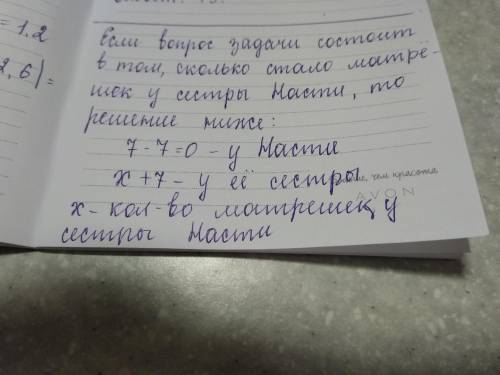 = 1.2
2, 6) =
если вопрос задачи состоит
в том, сколько стало матрё-
шек у сестры Насти, то
решение ниже:
7-7=0 - у Насти
х+7- у её сестры
чем красота
AVON
х- кол-во матрешек у
сестры Насти